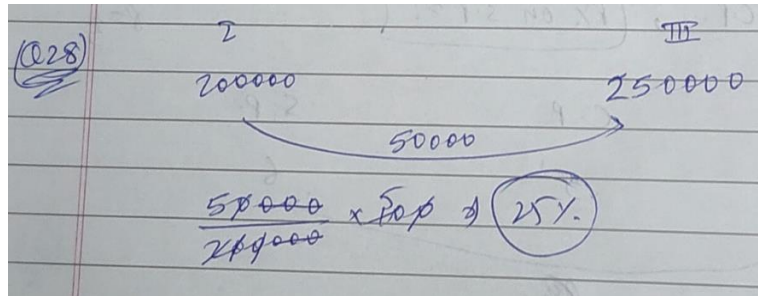 I III
Q28 200000 250000
50000
50000/200000 × 100 ⇒ 25%.